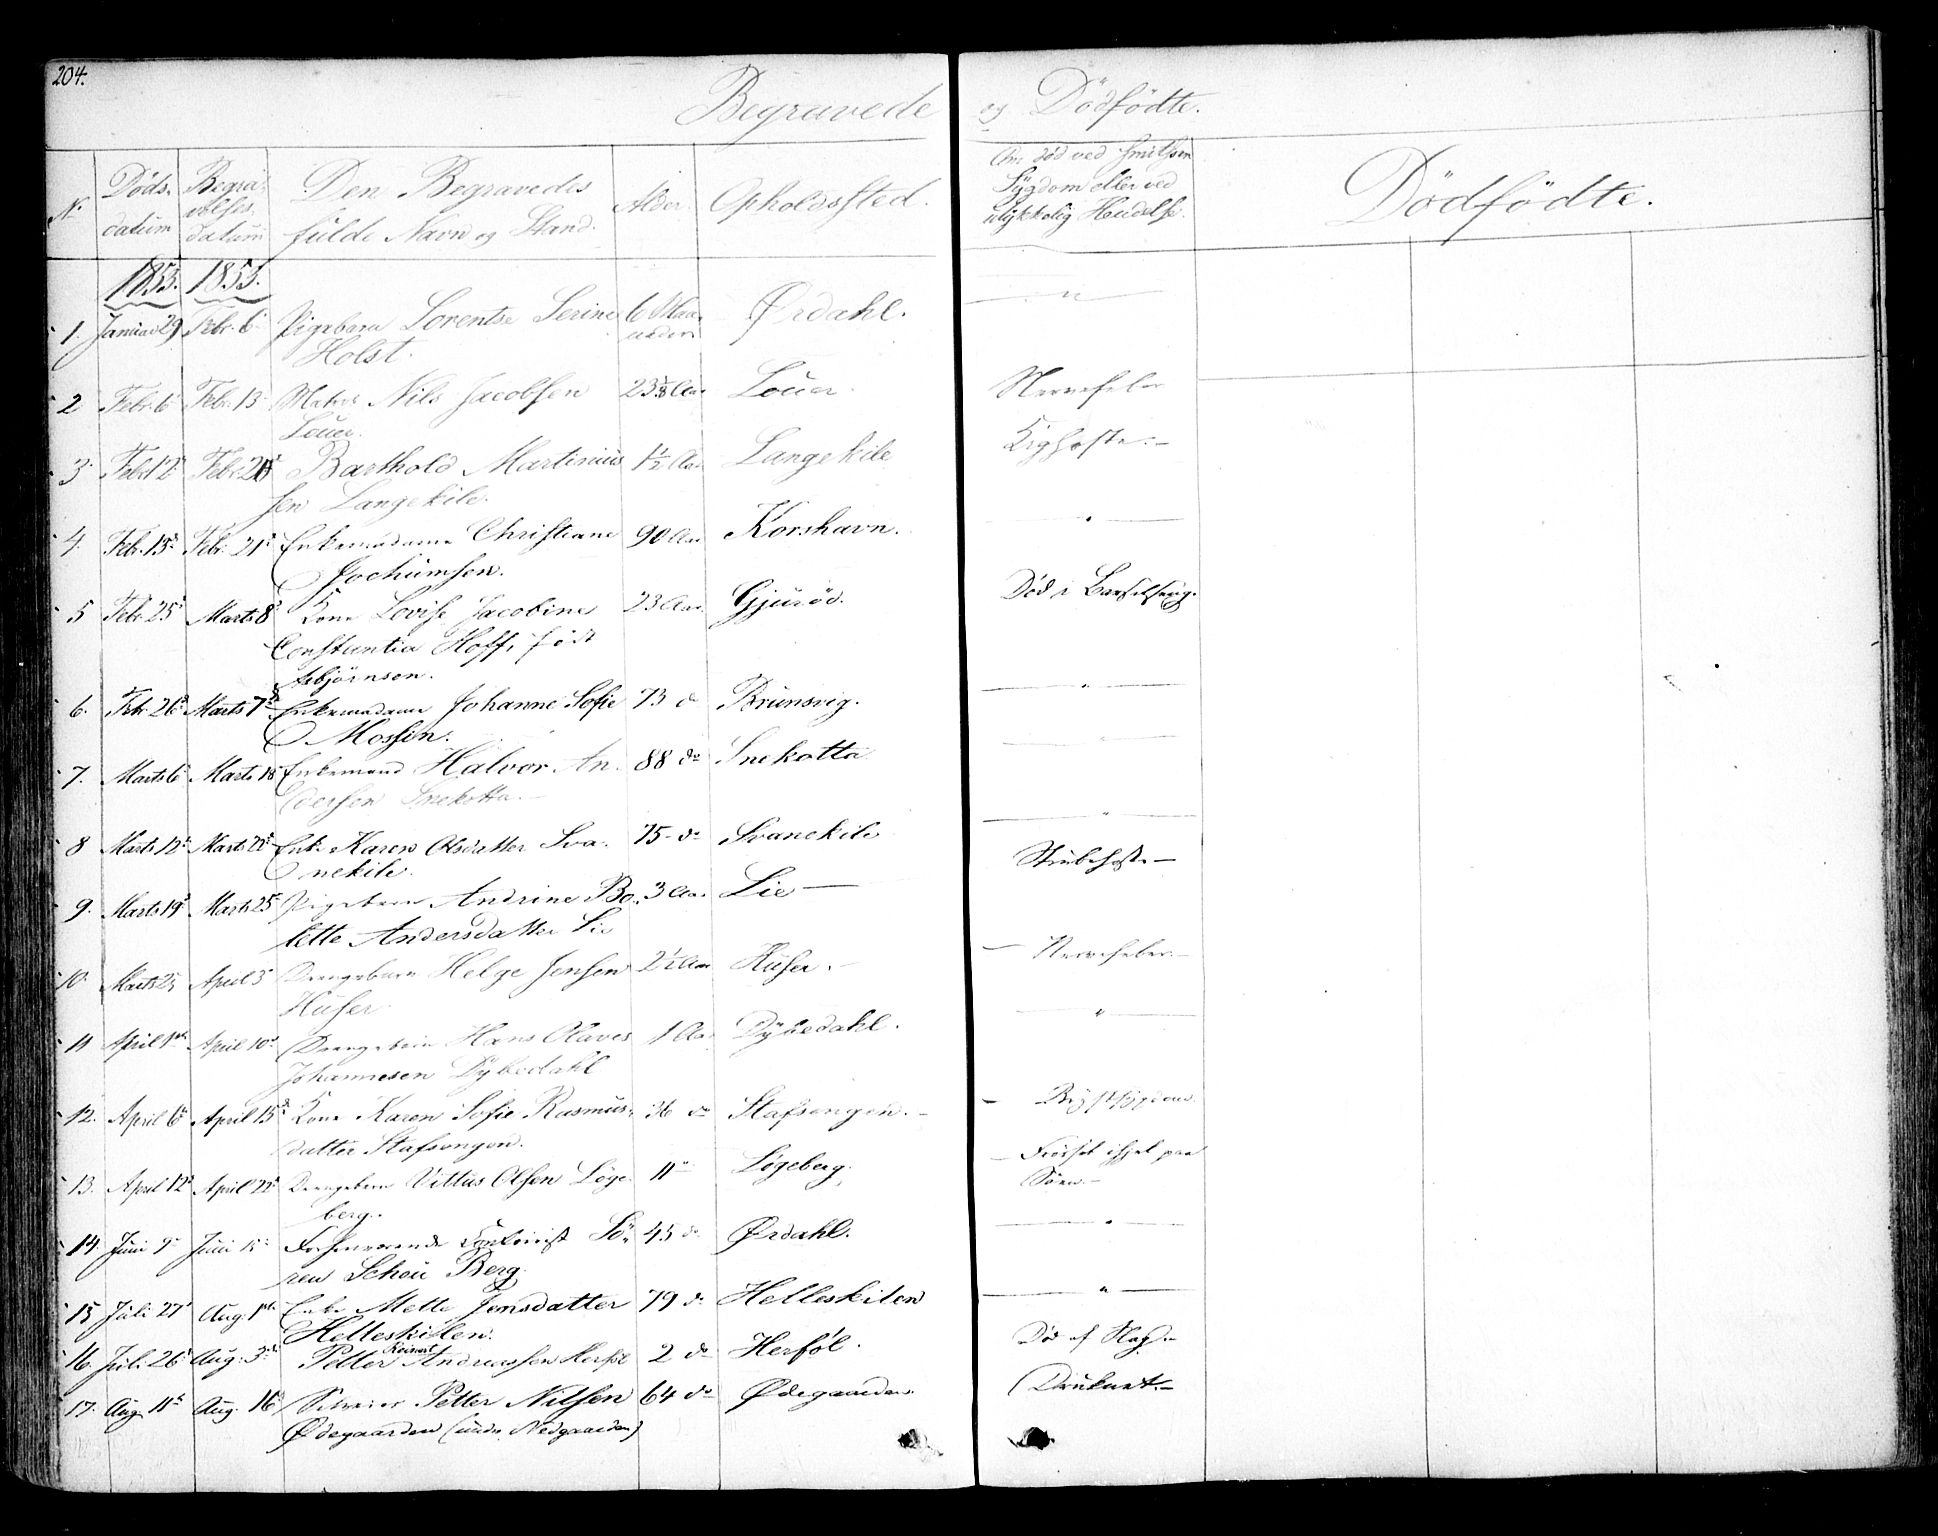 204.
Begravede og Dödfödte.
N. Döds- datum Begravelses datum Den Begravedes fulde Navn og Stand. Alder. Opholdssted. Om död ved smitsom Sygdom eller ved ulykkelig Hendelse. Dödfödte.
1853. 1853.
1. Januar 29 Febr. 6 Pigebarn Lorentse Serine 6 Maa- Ørdahl. "
Holst. neder
2 Febr. 6 Febr. 13 Matros Nils Jacobsen 23 Aar Löuer. Nervefeber
Löuer.
3 Febr. 12 Febr. Barthold Martinius 1½ Aar Langekile Kighoste.
sen Langekile.
4. Feb. 15 Febr. 21 Enkemadame Christiane 90 Aar Korshavn. "
Jochumsen.
5 Febr. 25 Marts 8 Kone Lovise Jacobine 23 Aar Gjusöd. Död i Barselseng.
Constantia Hoff, föd
Asbjörnsen.
6. Febr. 26 Marts 7 Enkemadame Johanne Sofie 73 do Brunsvig. "
Mossin.
7. Marts 6 Marts 18 Enkemand Halvor An- 88 do Snekotta "
dersen Snekotta.
8 Marts 12 Marts 22 Enke Karen Olsdatter Sva- 75 do Svanekile "
nekile.
9. Marts 19 Marts 25 Pigebarn Andrine Bo- 3 Aar Lie Strubehoste
lette Andersdatter Lie
10. Marts 25 April 3 Drengebarn Helge Jensen 2½ Aar Huser. Nervefeber
Huser
11 April 1 April 10 Drengebarn Hans Olaves 1 Aar Dybedahl. "
Johannesen Dybedahl
12. April 6 April 15 Kone Karen Sofie Rasmus- 36 do Stafsengen. Brystsygdom
datter Stafsengen.
13. April 12 April 22 Drengebarn Vittus Olsen Löge- 11 " Lögeberg. paa
berg. Söen.
14. Juni 9 Juni 15 Forhenværende Sö- 45 do Ørdahl. "
ren Schöu Berg.
15 Juli 27 Aug. 1 Enke Mette Jensdatter 79 do Helleskilen "
Helleskilen.
16. Juli 26 Aug: 3 Petter Reinert Andreassen Herföl 2 do Herföl. Död af Slag
17. Aug. 11 Aug. 16 Petter Nilsen 64 do Ødegaarden. Druknet.
Ødegaarden (under Nedgaarden)